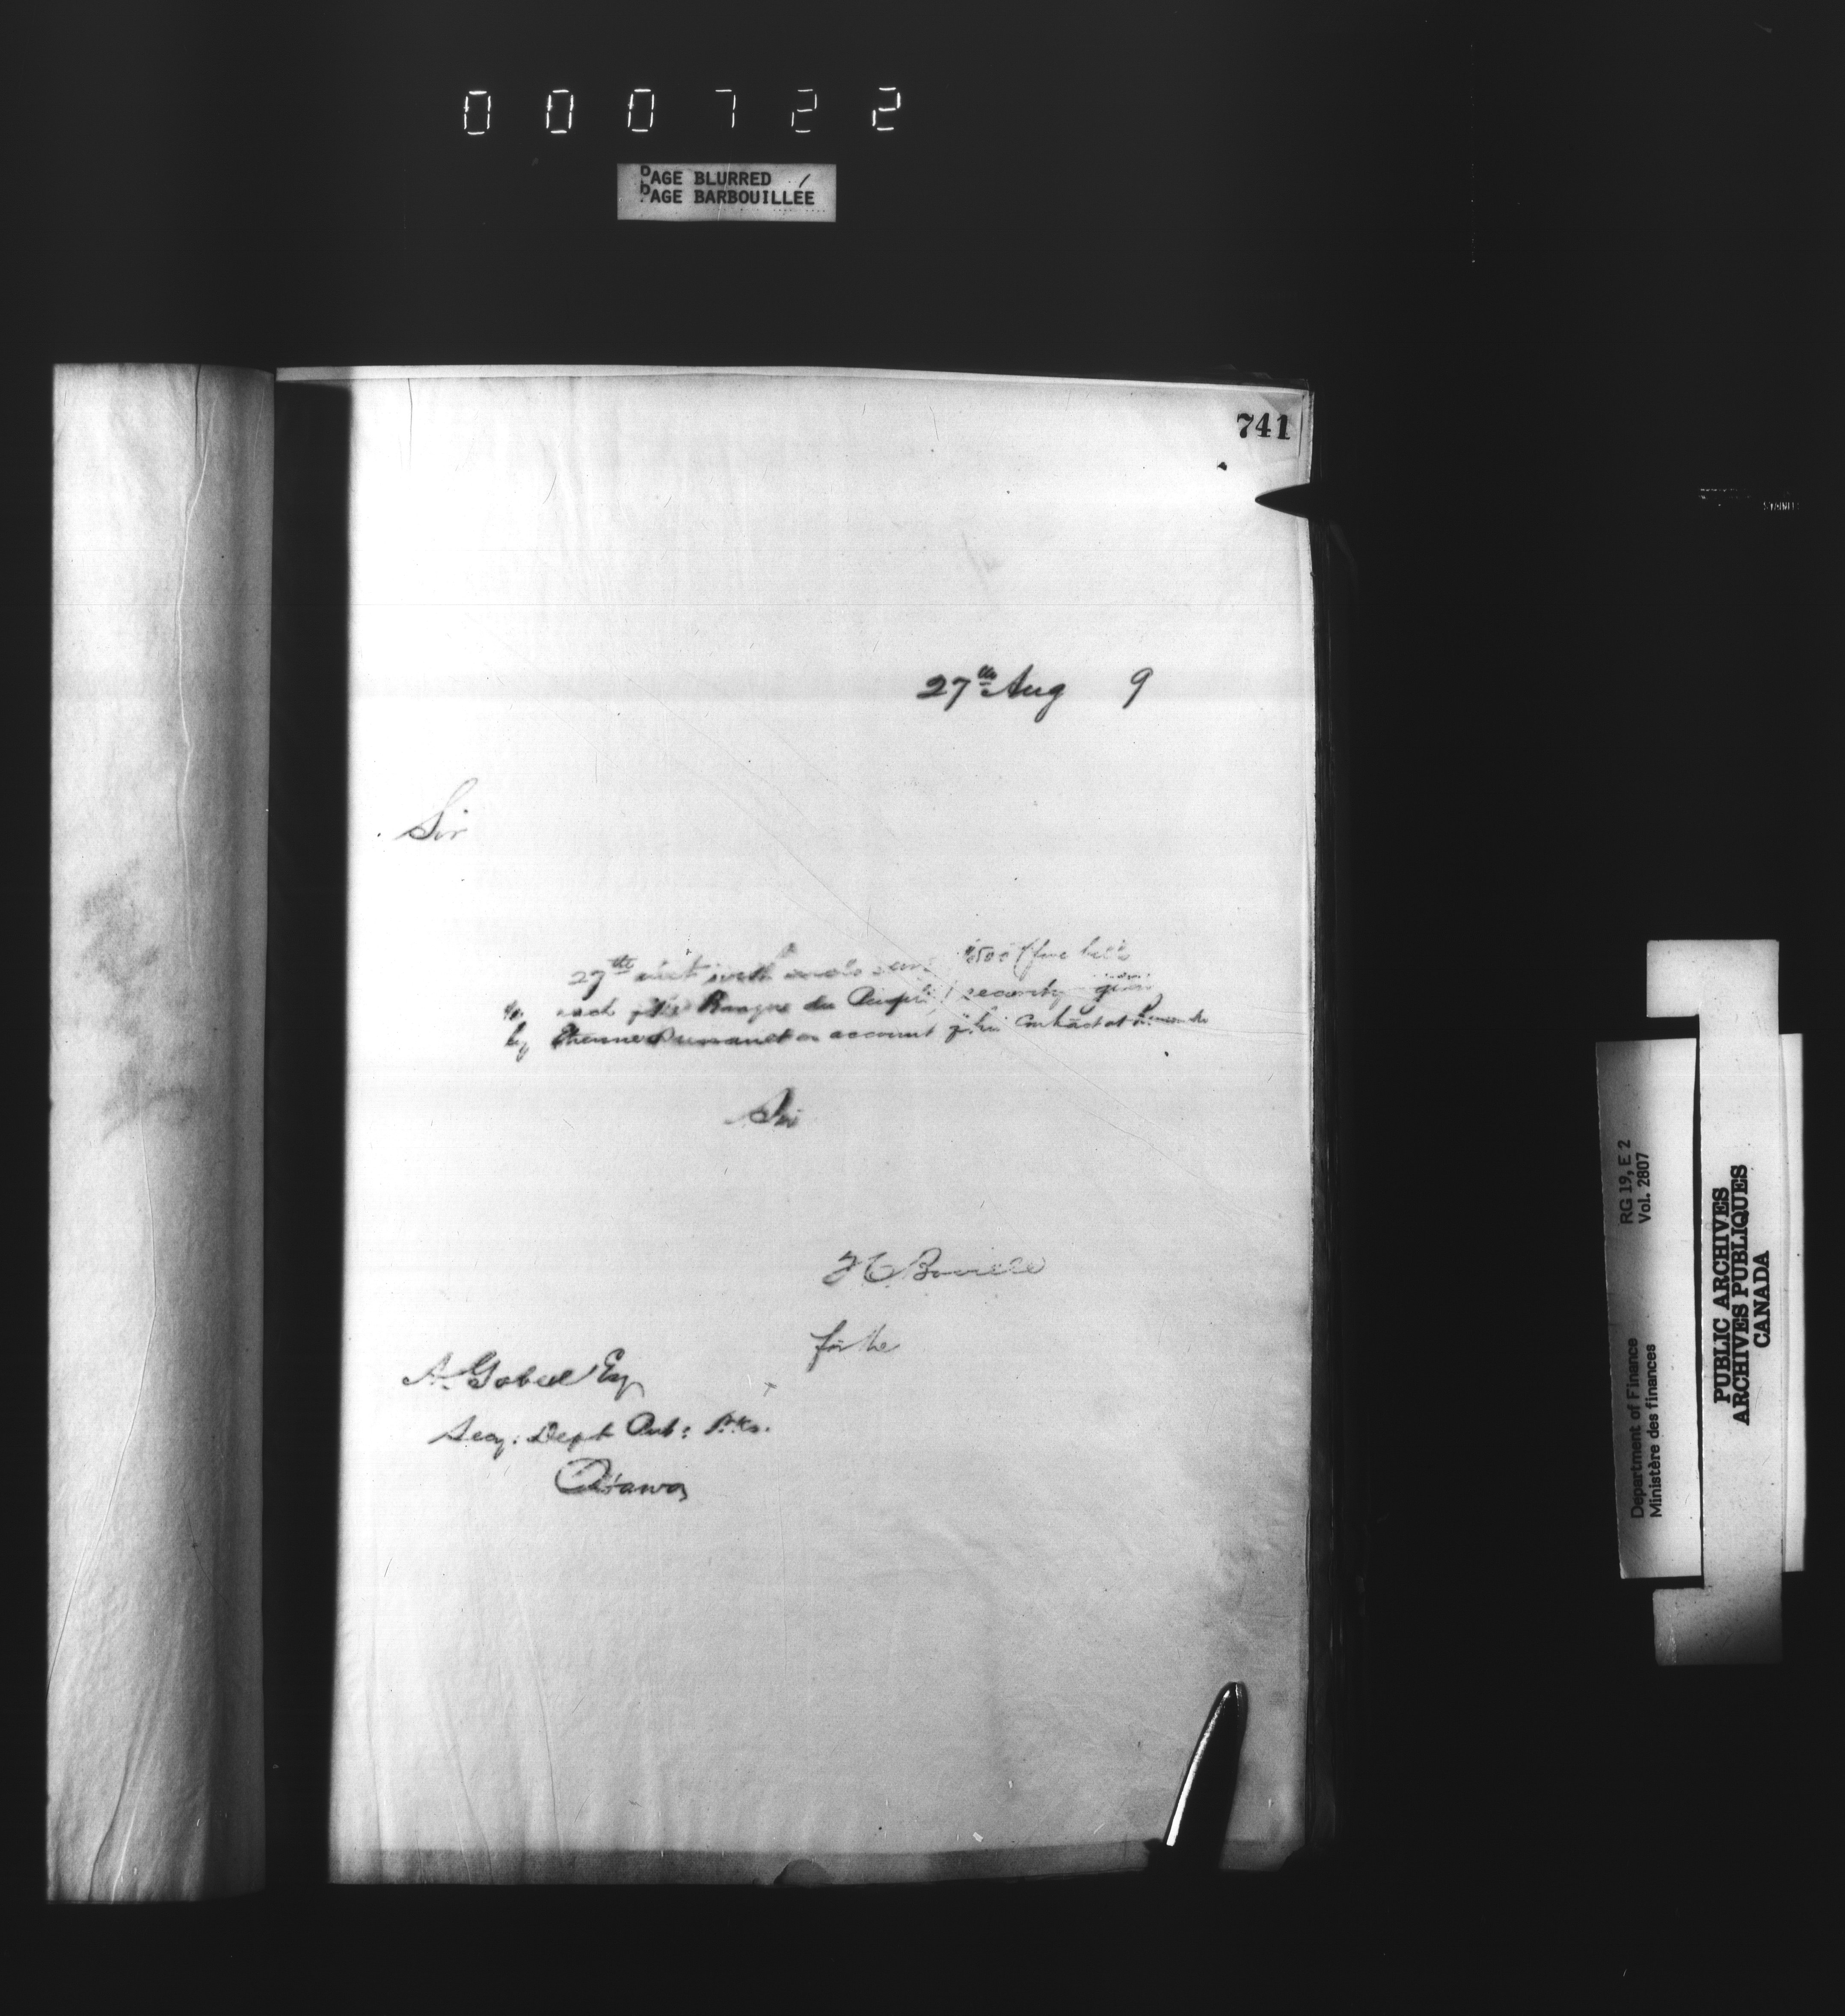 000722
PAGE BLURRED
PAGE BARBOUILLÉE
741
27th Aug 9
Sir
27th inst with $500 (five bills
each of the Banque du Peuple) security given
by Etienne Dussault on account of his contract at
Sir
for the
A. Gobeil Esq
Secy: Dept Pub: Wks.
Ottawa
RG 19, E 2
Vol. 2807
Department of Finance
Ministère des finances
PUBLIC ARCHIVES
ARCHIVES PUBLIQUES
CANADA